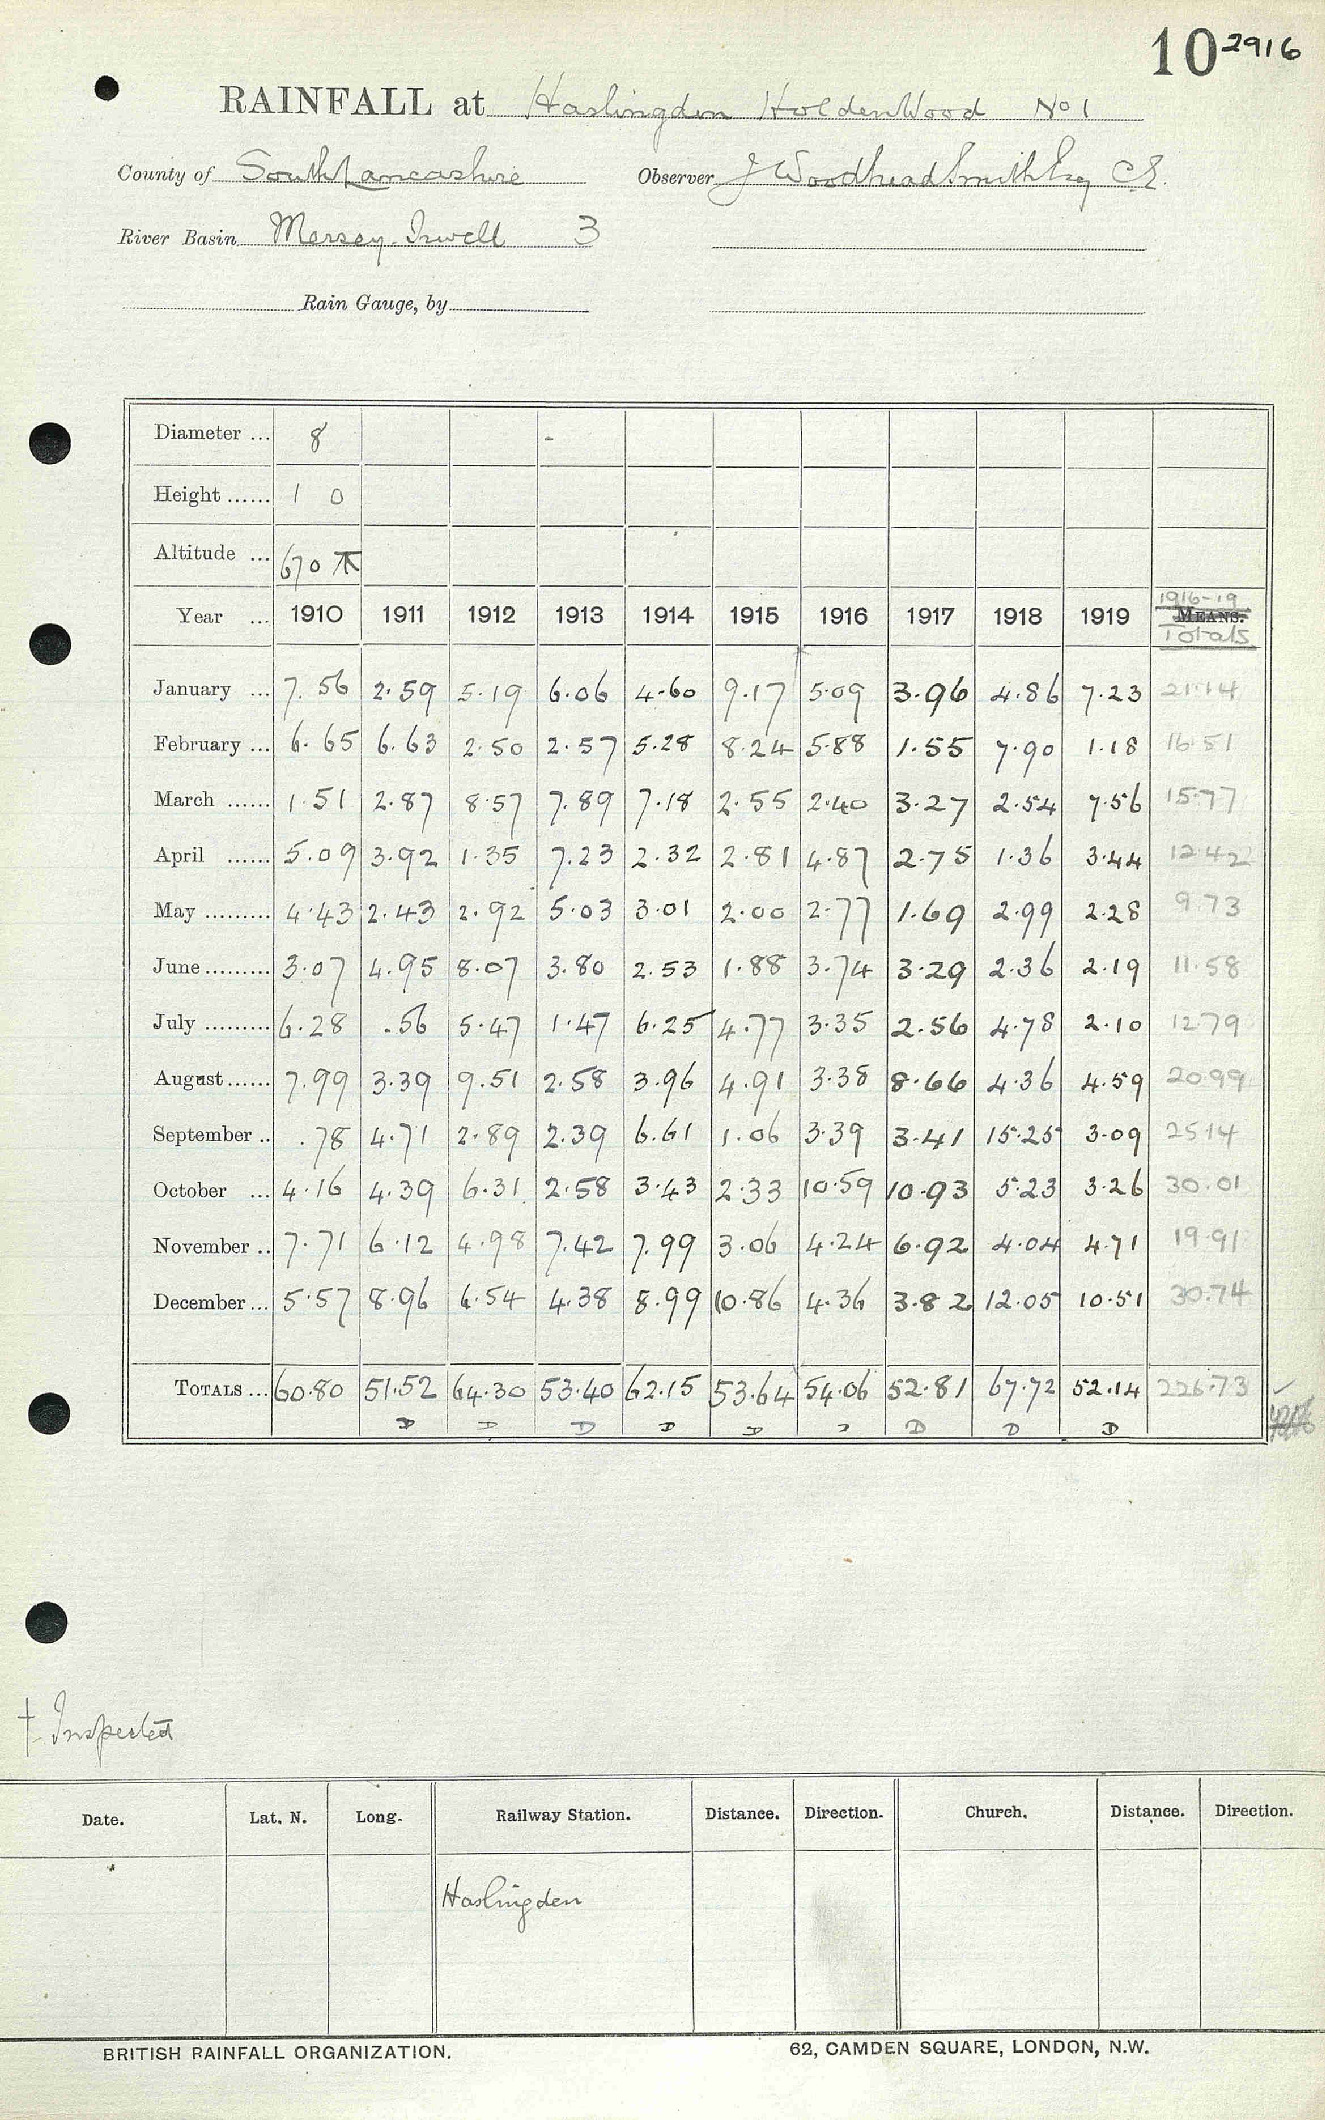 10 2916
RAINFALL at Haslingden Holden Wood No 1
County of South Lancashire Observer J Woodhead Smith Esq C.E.
River Basin Mersey-Irwell 3
Rain Gauge, by
Diameter ... 8
Height ...... 1 0
Altitude ... 670
Year ... 1910 1911 1912 1913 1914 1915 1916 1917 1918 1919 1916-19 MEANS. Totals
January ... 7.56 2.59 5.19 6.06 4.60 9.17 5.09 3.96 4.86 7.23 21.14
February ... 6.65 6.63 2.50 2.57 5.28 8.24 5.88 1.55 7.90 1.18 16.51
March ...... 1.51 2.87 8.57 7.89 7.18 2.55 2.40 3.27 2.54 7.56 15.77
April ...... 5.09 3.92 1.35 7.23 2.32 2.81 4.87 2.75 1.36 3.44 12.42
May ......... 4.43 2.43 2.92 5.03 3.01 2.00 2.77 1.69 2.99 2.28 9.73
June ......... 3.07 4.95 8.07 3.80 2.53 1.88 3.74 3.29 2.36 2.19 11.58
July ......... 6.28 .56 5.47 1.47 6.25 4.77 3.35 2.56 4.78 2.10 12.79
August ...... 7.99 3.39 9.51 2.58 3.96 4.91 3.38 8.66 4.36 4.59 20.99
September .. .78 4.71 2.89 2.39 6.61 1.06 3.39 3.41 15.25 3.09 25.14
October ... 4.16 4.39 6.31 2.58 3.43 2.33 10.59 10.93 5.23 3.26 30.01
November .. 7.71 6.12 4.98 7.42 7.99 3.06 4.24 6.92 4.04 4.71 19.91
December ... 5.57 8.96 6.54 4.38 8.99 10.86 4.36 3.82 12.05 10.51 30.74
TOTALS ... 60.80 51.52 64.30 53.40 62.15 53.64 54.06 52.81 67.72 52.14 226.73
D D D D D D D D D
† Inspected
Date. Lat. N. Long. Railway Station. Distance. Direction. Church. Distance. Direction.
Haslingden
BRITISH RAINFALL ORGANIZATION. 62, CAMDEN SQUARE, LONDON, N.W.